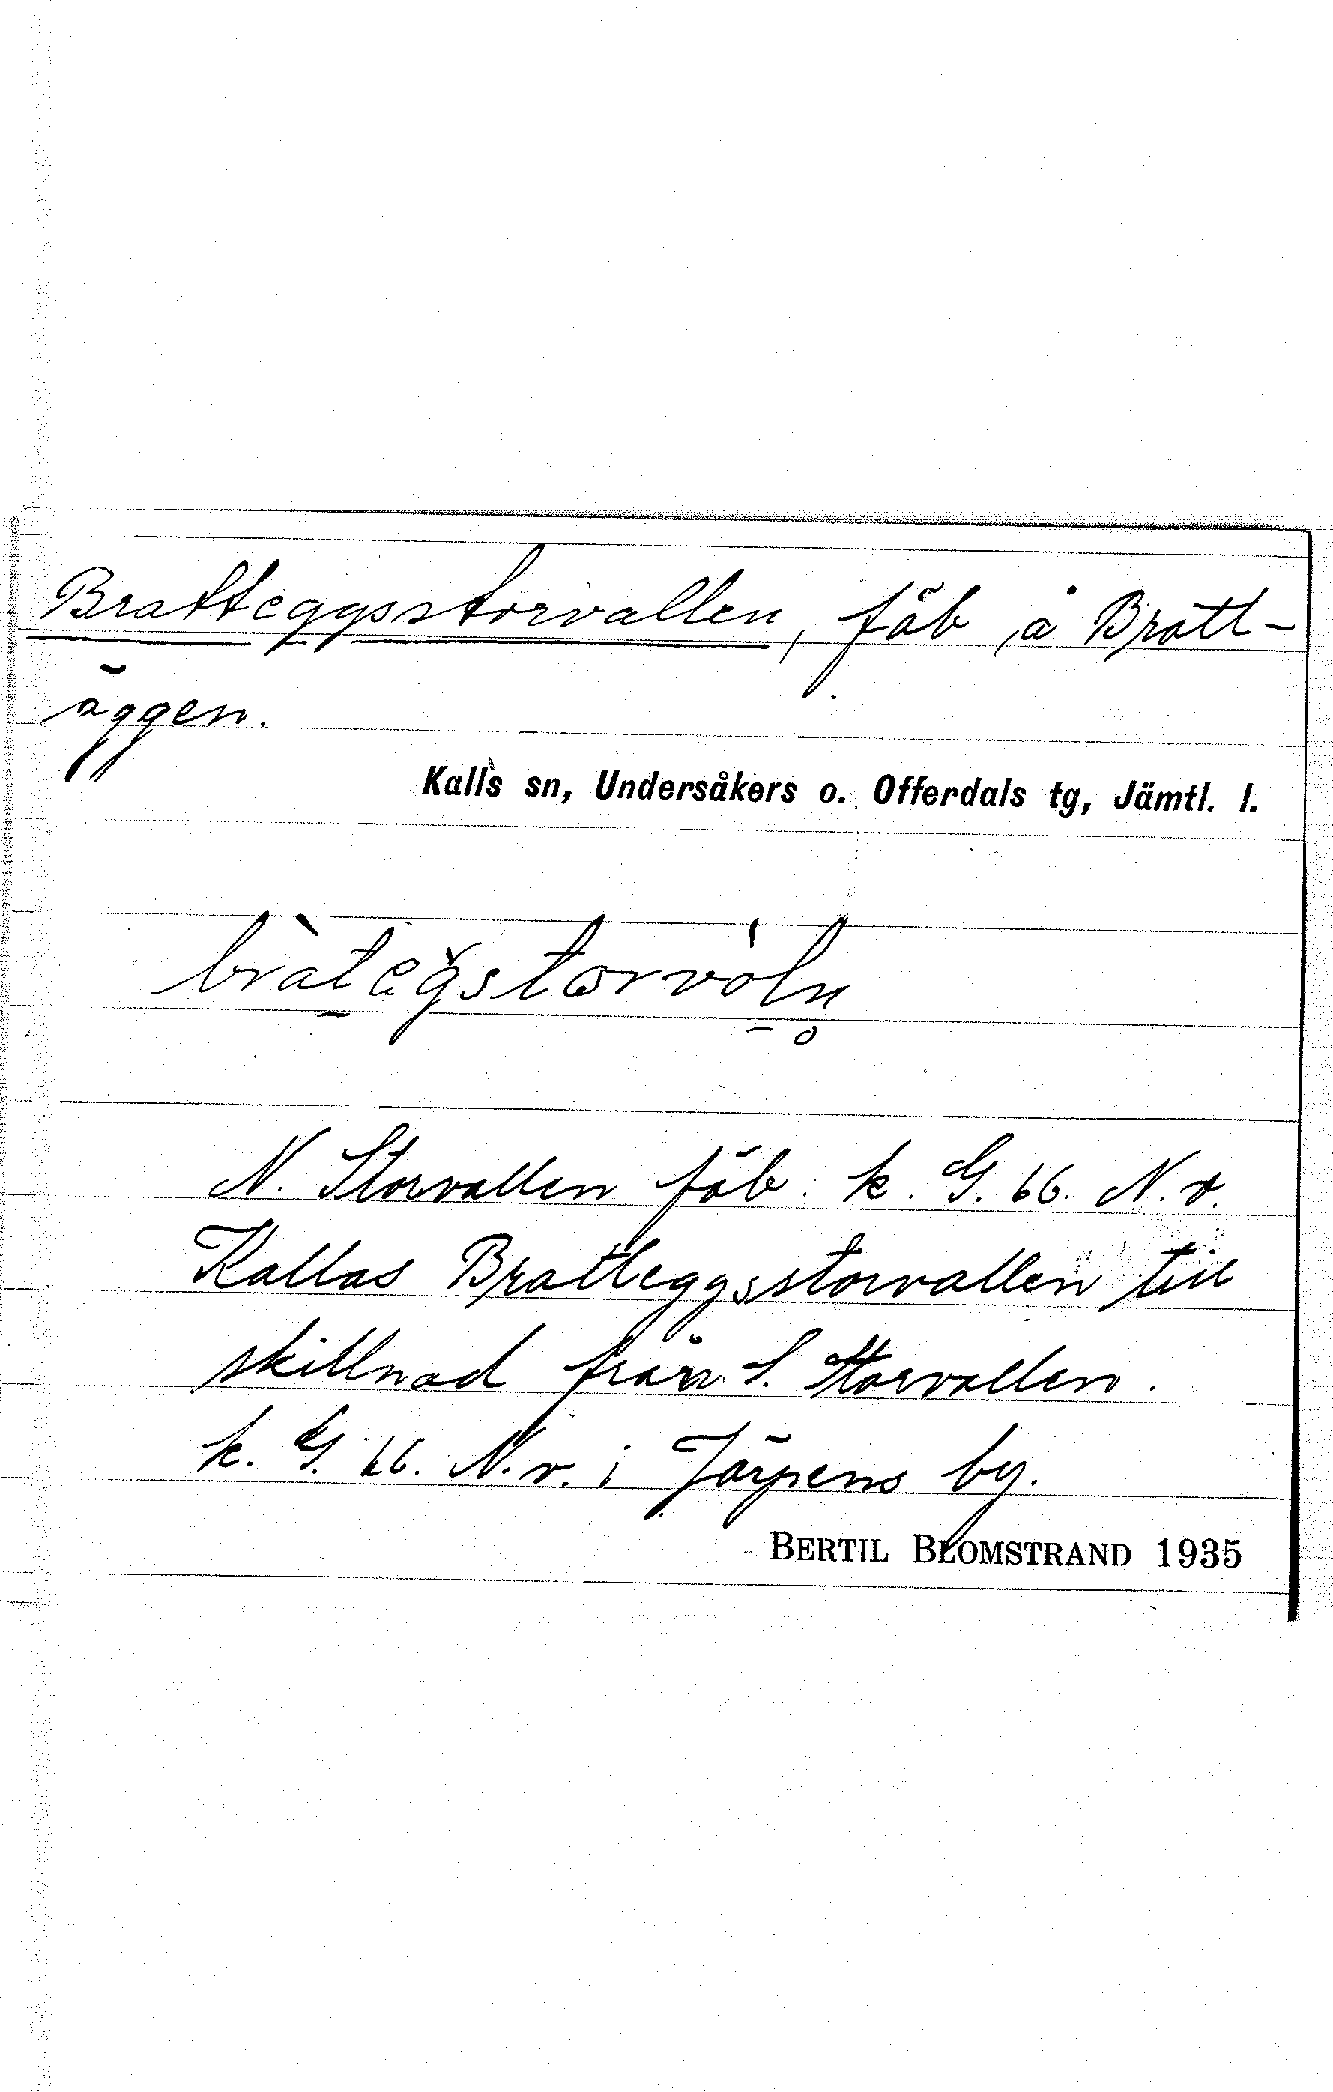 Bratteggsstorvallen, fäb å Bratt-
äggen.
Kalls sn, Undersåkers o. Offerdals tg, Jämtl. l.
N. Storvallen fäb. k. G. 66. N. v.
Kallas Bratteggsstorvallen till
skillnad från S. Storvallen.
k. G. 66. N. v. i Järpens by.
BERTIL BLOMSTRAND 1935